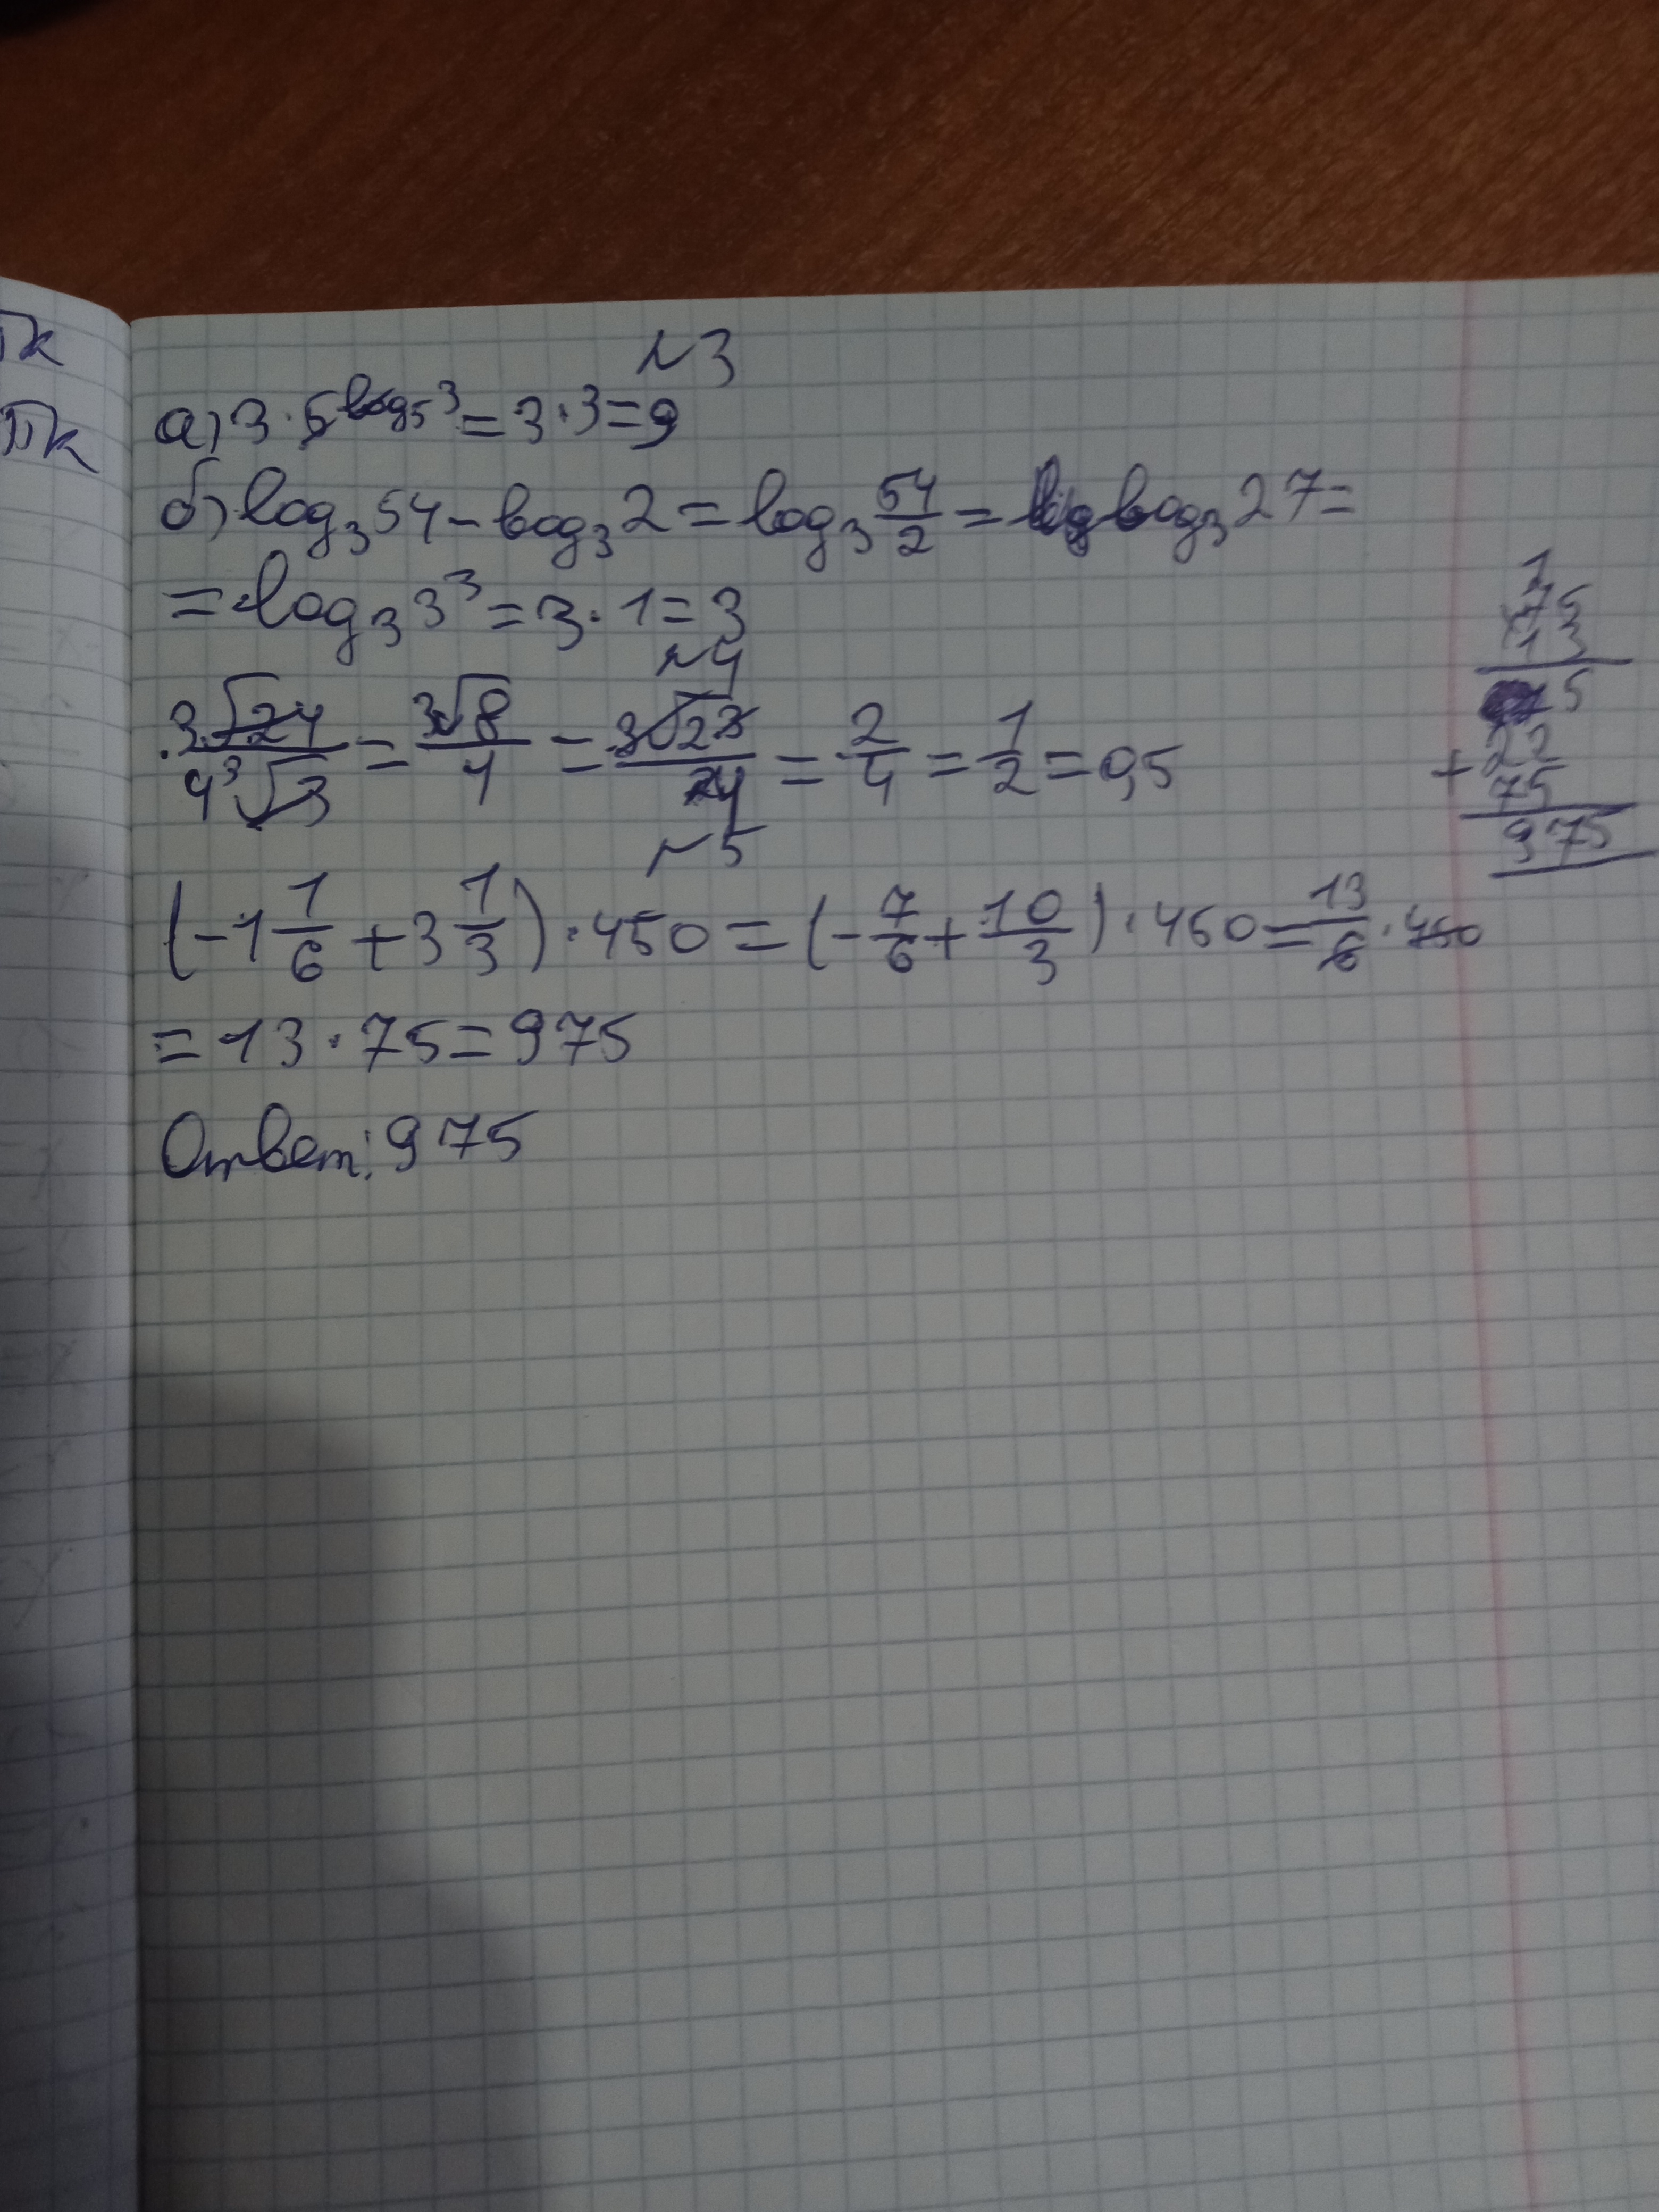 πk
πk
N3
а) 3 · 5^log₅3 = 3 · 3 = 9
б) log₃54 - log₃2 = log₃ 54/2 = log₃27 =
= log₃3³ = 3 · 1 = 3
N4
³√24 / 4³√3 = ³√8 / 4 = ³√2³ / 4 = 2/4 = 1/2 = 0,5
N5
(-1 1/6 + 3 1/3) · 450 = (-7/6 + 10/3) · 450 = 13/6 · 450
= 13 · 75 = 975
Ответ: 975
1
75
13
+ 22
75
975